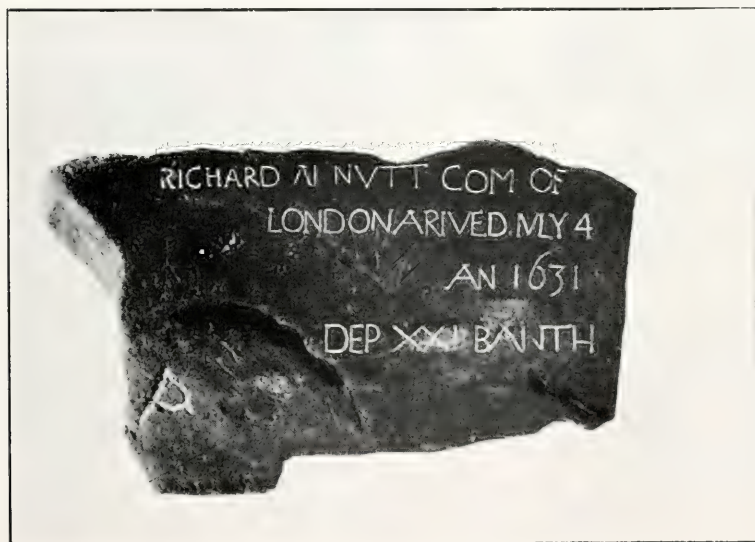 RICHARD AI NVTT COM OF
LONDON ARIVED IVLY 4
AN 1631
DEP XXI BANTH